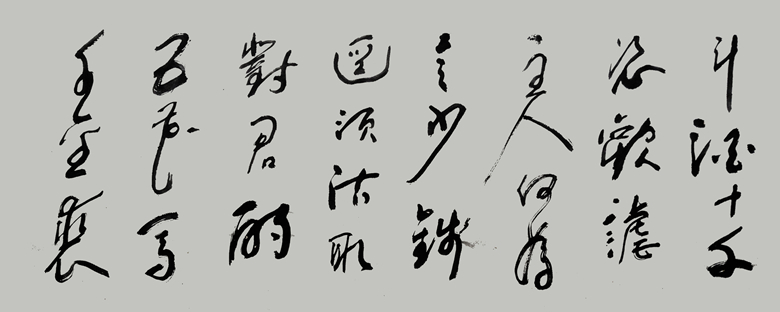 斗酒十千
恣歡謔
主人何為
言少錢
逕須沽取
對君酌
五花馬
千金裘